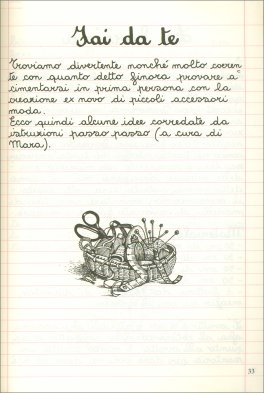 Fai da te
Troviamo divertente nonché molto coeren
te con quanto detto finora provare a
cimentarsi in prima persona con la
creazione ex novo di piccoli accessori
moda.
Ecco quindi alcune idee corredate da
istruzioni passo passo (a cura di
Mara).
33